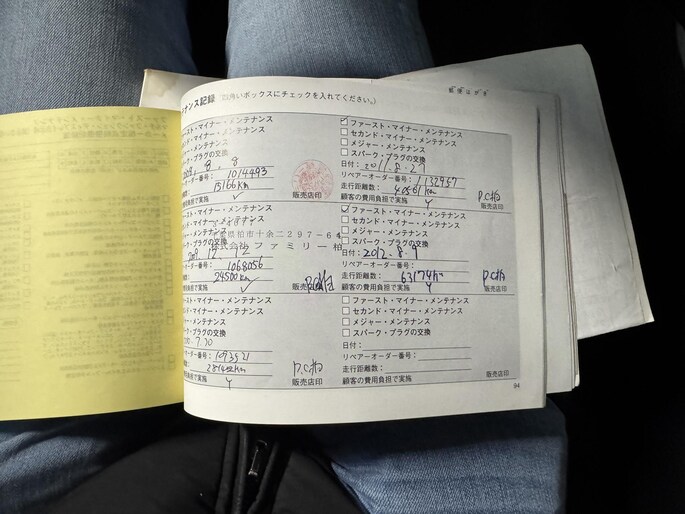 整備はがき
ナンス記録 (四角いボックスにチェックを入れてください。)
ァースト・マイナー・メンテナンス
ンド・マイナー・メンテナンス
ャー・メンテナンス
ーク・プラグの交換
8.8
ーオーダー番号: 1014493
15166km
担で実施
販売店印
ファースト・マイナー・メンテナンス
セカンド・マイナー・メンテナンス
メジャー・メンテナンス
スパーク・プラグの交換
日付: 2011.8.27
リペアーオーダー番号: 1132957
走行距離数: 40561km
顧客の費用負担で実施 Y
P.C柏
販売店印
ースト・マイナー・メンテナンス
ンド・マイナー・メンテナンス
ャー・メンテナンス
ーク・プラグの交換
千葉県柏市十余二297-64
株式会社ファミリー柏
2009 12. 12
ーオーダー番号: 1068056
24500km
担で実施
P.C柏
販売店印
ファースト・マイナー・メンテナンス
セカンド・マイナー・メンテナンス
メジャー・メンテナンス
スパーク・プラグの交換
日付: 2012.8.9
リペアーオーダー番号:
走行距離数: 63174km
顧客の費用負担で実施 Y
P.C柏
販売店印
ースト・マイナー・メンテナンス
ンド・マイナー・メンテナンス
ャー・メンテナンス
ーク・プラグの交換
7.20
ーオーダー番号: 1093521
担で実施 Y
P.C柏
販売店印
ファースト・マイナー・メンテナンス
セカンド・マイナー・メンテナンス
メジャー・メンテナンス
スパーク・プラグの交換
日付:
リペアーオーダー番号:
走行距離数:
顧客の費用負担で実施
販売店印
94